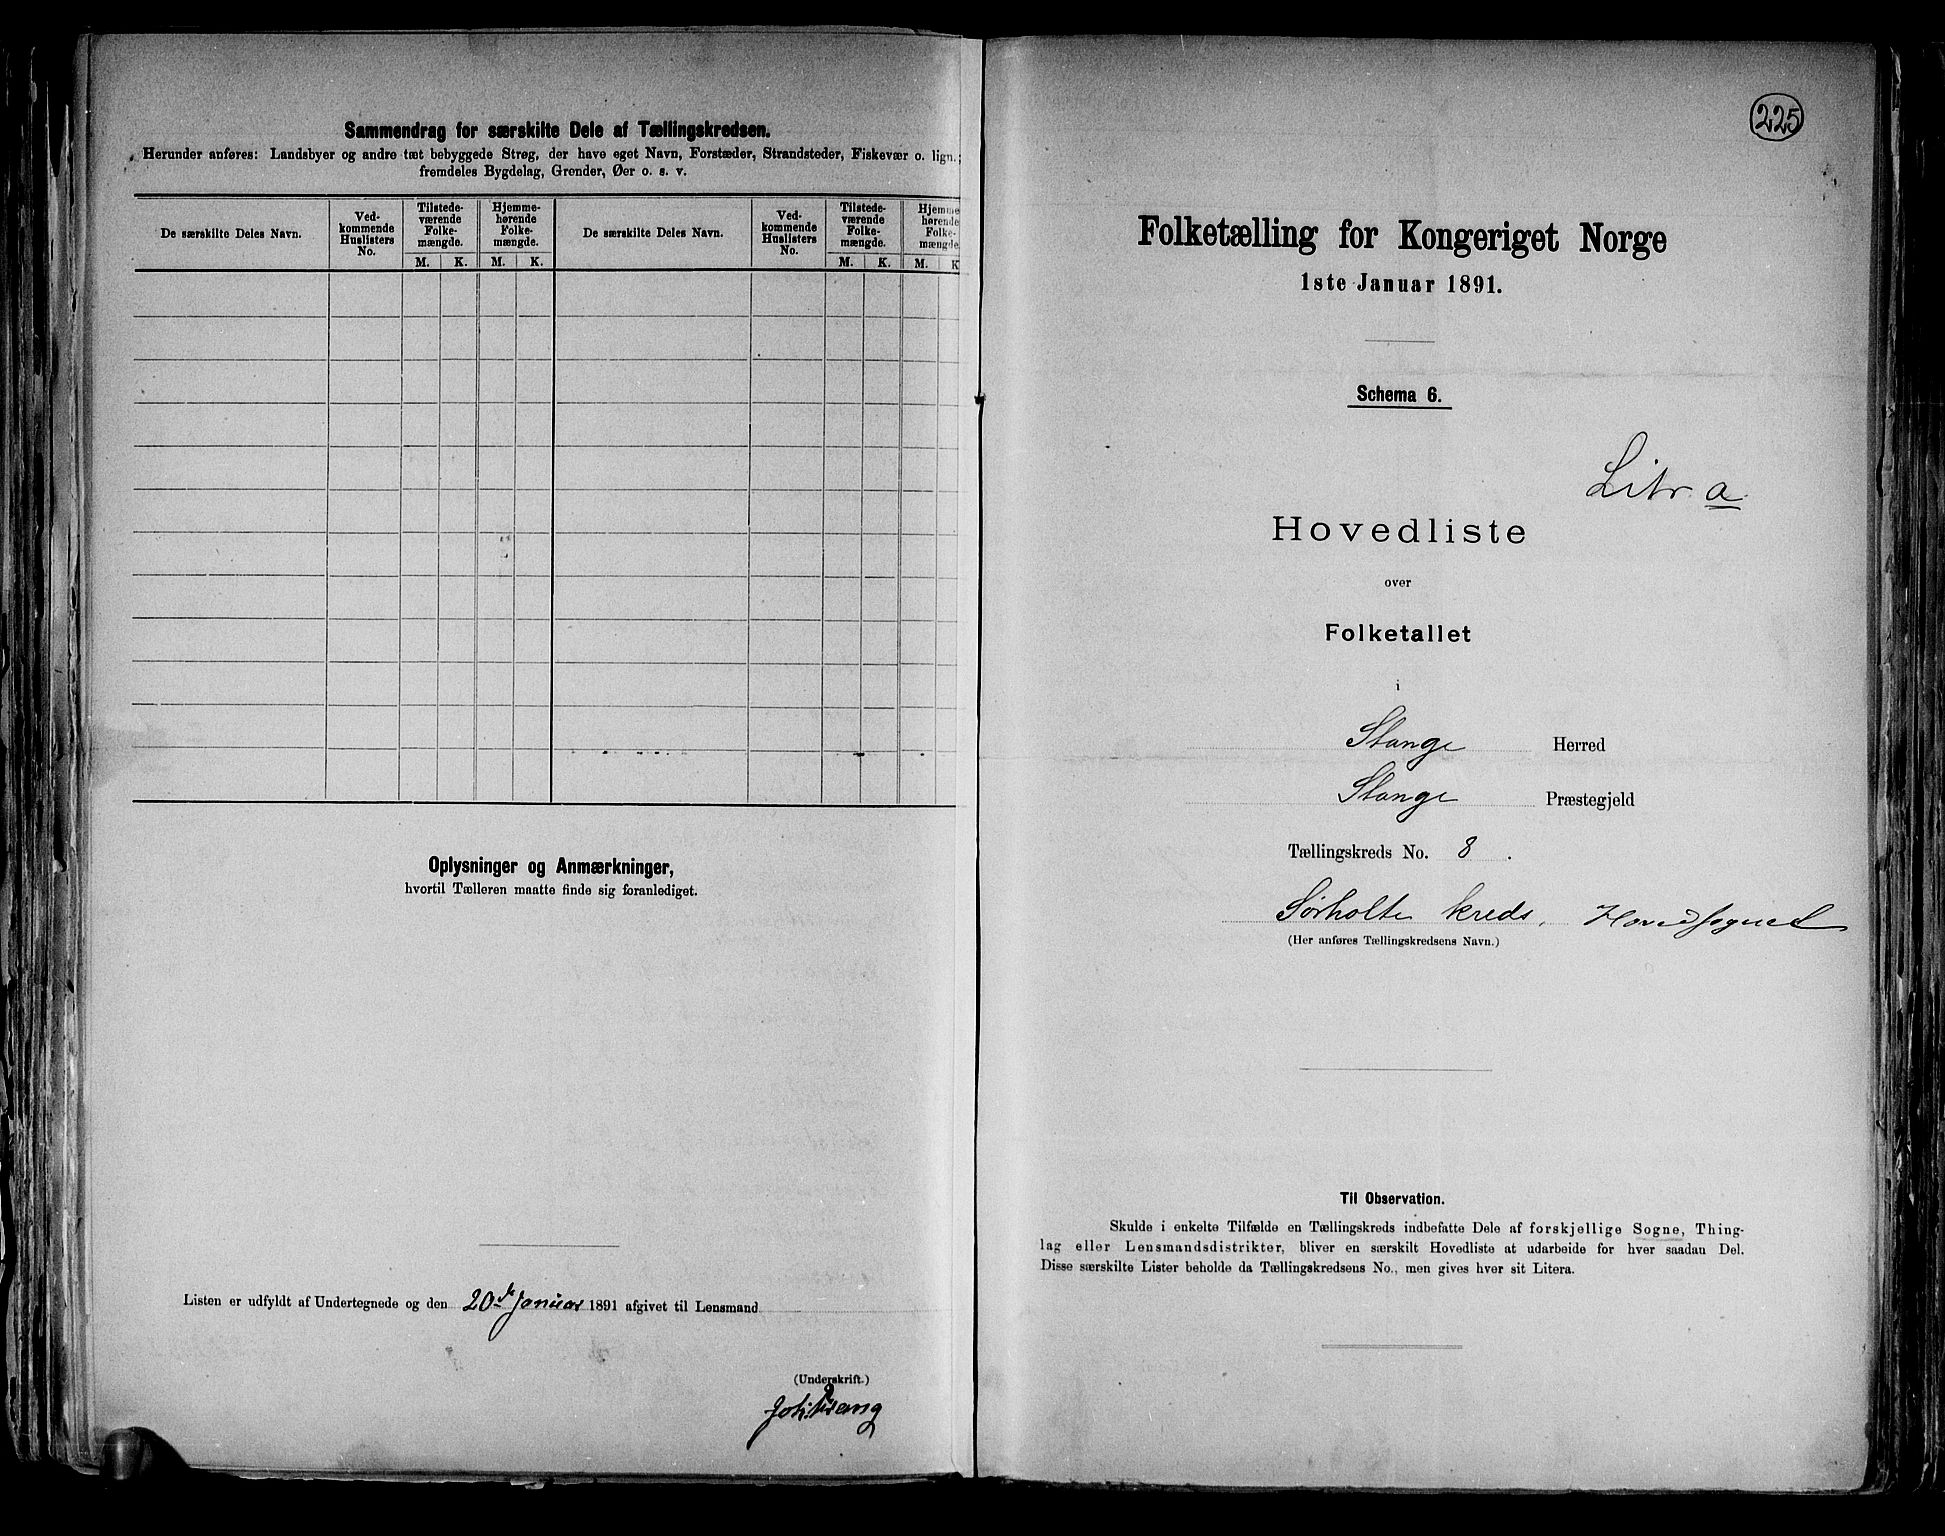 Sammendrag for særskilte Dele af Tællingskredsen.
Herunder anføres: Landsbyer og andre tæt bebyggede Strøg, der have eget Navn, Forstæder, Strandsteder, Fiskevær o. lign.;
fremdeles Bygdelag, Grender, Øer o. s. v.
De særskilte Deles Navn.
Ved-
kommende
Huslisters
No.
Tilstede-
værende
Folke-
mængde.
Hjemme-
hørende
Folke-
mængde.
De særskilte Deles Navn.
Ved-
kommende
Huslisters
No.
Tilstede-
værende
Folke-
mængde.
Hjemme
hørende
Folke-
mængde
M. K. M. K. M. K. M. K
Oplysninger og Anmærkninger,
hvortil Tælleren maatte finde sig foranlediget.
Listen er udfyldt af Undertegnede og den 20de Januar 1891 afgivet til Lensmand
(Underskrift.)
225
Folketælling for Kongeriget Norge
1ste Januar 1891.
Schema 6.
Litr. a
Hovedliste
over
Folketallet
i
Stange Herred
Stange Præstegjeld
Tællingskreds No. 8.
Sørholte kreds, Hovedsognet
(Her anføres Tællingskredsens Navn.)
Til Observation.
Skulde i enkelte Tilfælde en Tællingskreds indbefatte Dele af forskjellige Sogne, Thing-
lag eller Lensmandsdistrikter, bliver en særskilt Hovedliste at udarbeide for hver saadan Del.
Disse særskilte Lister beholde da Tællingskredsens No., men gives hver sit Litera.